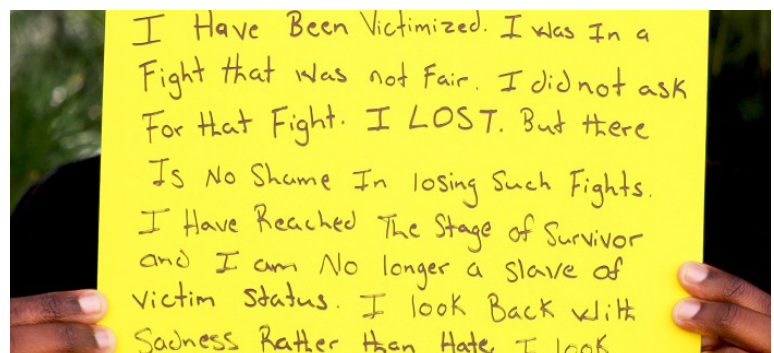 I Have Been Victimized. I was In a
Fight that was not Fair. I did not ask
For that Fight. I LOST. But there
Is No Shame In losing Such Fights.
I Have Reached The Stage of Survivor
and I am No longer a slave of
victim status. I look Back with
Sadness Rather than Hate. I look